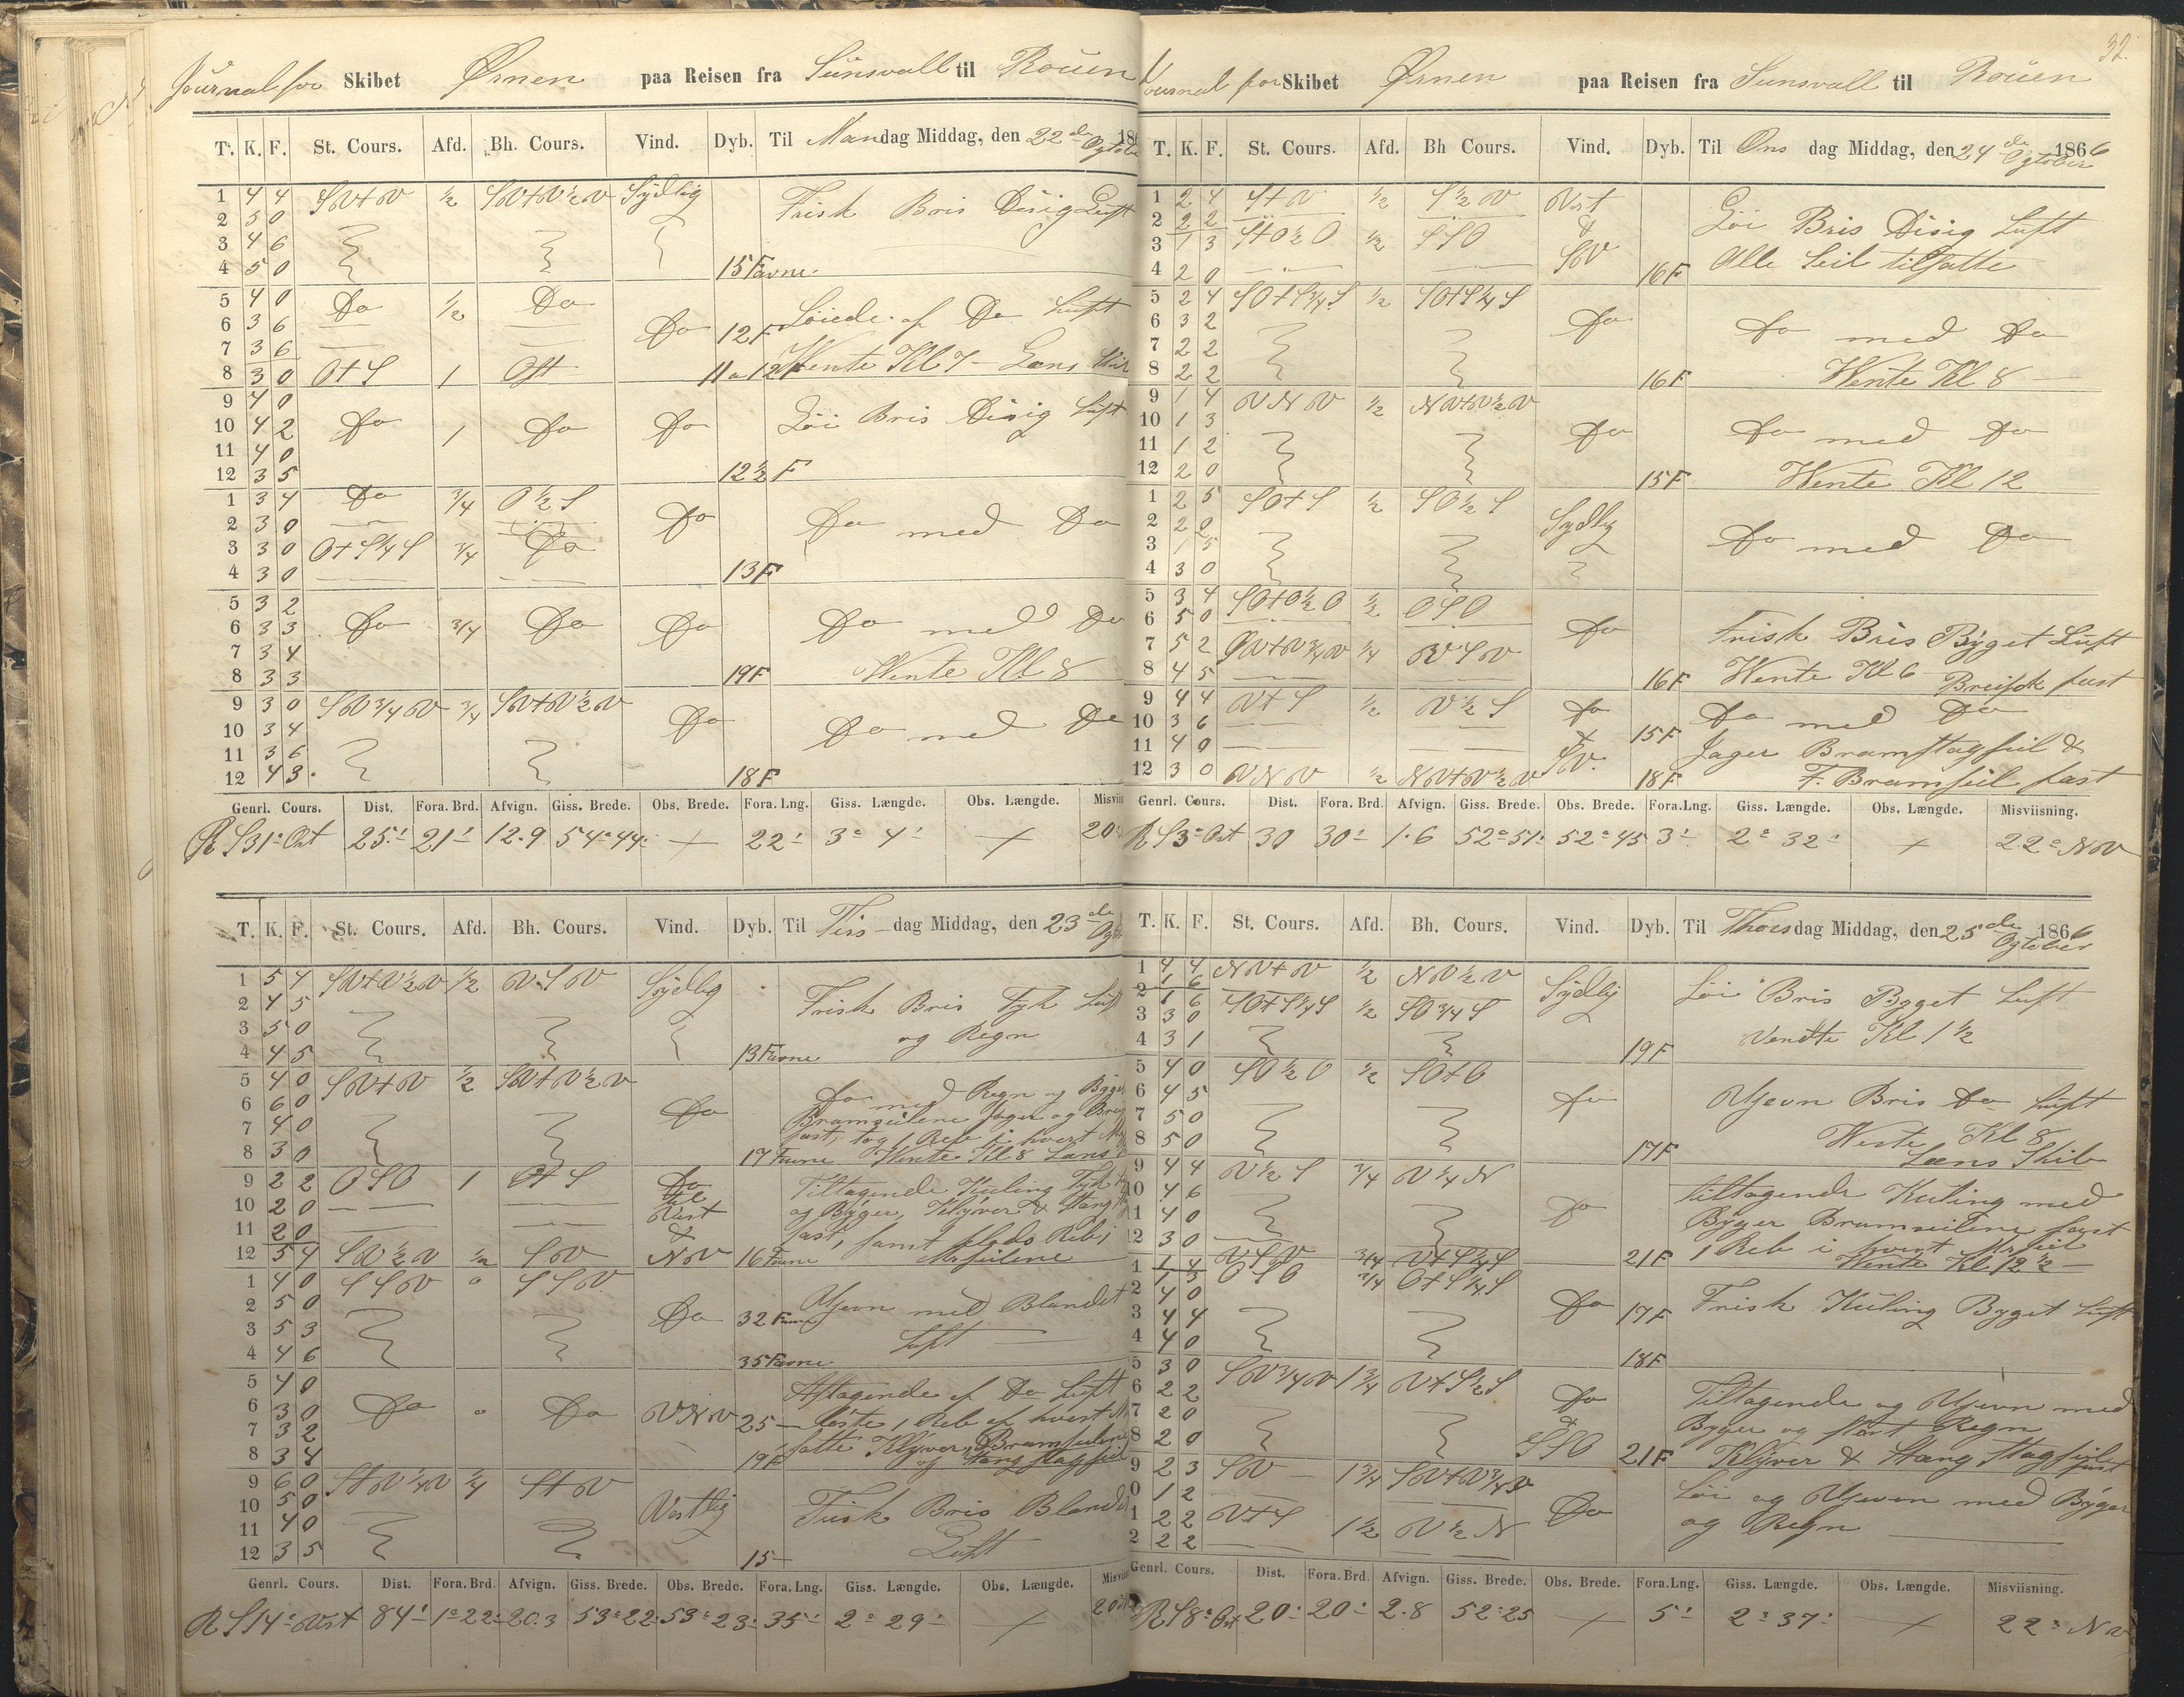 Journal for Skibet Ørnen paa Reisen fra Sunsvall til Rouen
T. K. F. St. Cours. Afd. Bh. Cours. Vind. Dyb. Til Mandag Middag, den 22de Ogtobe 186
1 4 4 SV+V ½ SV+V½V Sydlig Frisk Bris Disig Luft
2 5 0
3 4 6
4 5 0 15 Favne
5 4 0 Do ½ Do
6 3 6 Do 12 F Løiede af Do Luft
7 3 6
8 3 0 O+S 1 Ost 11 a 12 F Wente Kl 7 - Læns
9 4 0
10 4 2 Do 1 Do Do Løi Bris Disig Luft
11 4 0
12 3 5 12½ F
1 3 4 Do ¾ O½S
2 3 0 Do Do med Do
3 3 0 O+S¼S ¾ Do
4 3 0 13 F
5 3 2
6 3 3 Do ¾ Do Do Do med Do
7 3 4
8 3 3 19 F Wente Kl 8
9 3 0 SV¾V ¾ SV+V½V
10 3 4 Do Do med Do
11 3 6
12 4 3 18 F
Genrl. Cours. Dist. Fora. Brd. Afvign. Giss. Brede. Obs. Brede. Fora. Lng. Giss. Længde. Obs. Længde. Misvii
R S31° Ost 25' 21' 12.9 54°44' + 22' 3° 4' + 20
T. K. F. St. Cours. Afd. Bh. Cours. Vind. Dyb. Til Tirsdag Middag, den 23de Ogto
1 5 4 SV+V½V ½ VSV Sydlig
2 4 5 Frisk Bris Tyk Luft
3 5 0 og Regn
4 4 5 13 Favne
5 4 0 SV+V ½ SV+V½V
6 6 0 Do Do med Regn og Byger
7 4 0 Bramseilene Jager og
fast, tog 1 Reb i hvert
8 3 0 17 Favne Wente Kl 8 Læns
9 2 2 OSO 1 O+S Do Tiltagende Kuling Tyk
10 2 0 til Vest og Byger, Klyver & Stang
11 2 0 & fast, samt
12 5 4 SV½V ½ SV NV 16 Favne Merseilene
1 4 0 SSV 0 SSV
2 5 0 Do 32 Favne Ujevn med Blandet
3 5 3 Luft
4 4 6 35 Favne
5 4 0 Aftagende af Do Luft
6 3 0 Do 0 Do VNV 25 løste 1 Reb af hvert
7 3 2 satte Klyver, Bramseilene
8 3 4 19 F og Stangstagseil
9 6 0 S+V¼V ¼ S+V
10 5 0 Vestlig Frisk Bris Blandet
11 4 0 Luft
12 3 5 15
Genrl. Cours. Dist. Fora. Brd. Afvign. Giss. Brede. Obs. Brede. Fora. Lng. Giss. Længde. Obs. Længde. Misvii
R S14° Vest 84' 1°22' 20.3 53°22' 53°23' 35' 2° 29' + 20
32.
Journal for Skibet Ørnen paa Reisen fra Sunsvall til Rouen
T. K. F. St. Cours. Afd. Bh Cours. Vind. Dyb. Til Onsdag Middag, den 24de Ogtober 1866
1 2 4 S+V ½ S½V Vest
2 2 2 & Løi Bris Disig Luft
3 1 3 S+O½O ½ SSO SV
4 2 0 16 F Alle Seil tilsatte
5 2 4 SO+S¾S ½ SO+S¼S
6 3 2 Do Do med Do
7 2 2
8 2 2 16 F Wente Kl 8
9 1 4 VNV ½ NV+V½V
10 1 3 Do Do med Do
11 1 2
12 2 0 15 F Wente Kl 12
1 2 5 SO+S ½ SO½S
2 2 0 Sydlig
3 1 5 Do med Do
4 3 0
5 3 4 SO+O½O ½ OSO
6 5 0 Do Frisk Bris Byget Luft
7 5 2 SV+V¾V ¼ VSV
8 4 5 16 F Wente Kl 6 Breifok fast
9 4 4 V+S ½ V½S Do Do med Do
10 3 6 & 15 F
11 4 0 SV. Jager Bramstagseil &
12 3 0 VNV ½ NV+V½V 18 F F. Bramseil fast
Genrl. Cours. Dist. Fora. Brd. Afvign. Giss. Brede. Obs. Brede. Fora.Lng. Giss. Længde. Obs. Længde. Misviisning.
R S3° Ost 30 30' 1.6 52°51' 52°45 3' 2° 32' + 22° NV
T. K. F. St. Cours. Afd. Bh. Cours. Vind. Dyb. Til Thorsdag Middag, den 25de Ogtober 1866
1 4 4 NV+V ½ NV½V Sydlig Løi Bris Byget Luft
1 6
2 1 6 SO+S¼S ½ SO¾S
3 3 0 Vendte Kl 1½
4 3 1 19 F
5 4 0 SO½O ½ SO+O
6 4 5 Do Ujevn Bris Do Luft
7 5 0
8 5 0 17 F Wente Kl 8
Læns Skib
9 4 4 V½S ¾ V¼N
10 4 6 Do tiltagende Kuling med
11 4 0 Byger Bramseilene fast
12 3 0 21 F 1 Reb i hvert Mrseil
1 1 4 VSV ¾ V+S¼S Wente Kl 12½
1 3 OSO ¾ O+S¼S
2 4 0 Do 17 F Frisk Kuling Byget Luft
3 4 4
4 4 0 18 F
5 3 0 SV¾V 1¾ V+S½S
6 2 2 Do Tiltagende og Ujevn med
7 2 0 & Byger og stærk Regn
8 2 0 SSO 21 F Klyver & Stang Stagseil fast
9 2 3 SV 1¾ SV+V¾V
0 1 2 Do Løi og Ujevn med Byger
1 2 2 V+S 1½ V½N og Regn
2 2 2
Genrl. Cours. Dist. Fora. Brd. Afvign. Giss. Brede. Obs. Brede. Fora.Lng. Giss. Længde. Obs. Længde. Misviisning.
R S8° Ost 20' 20' 2.8 52°25 + 5' 2° 37' + 22° NV